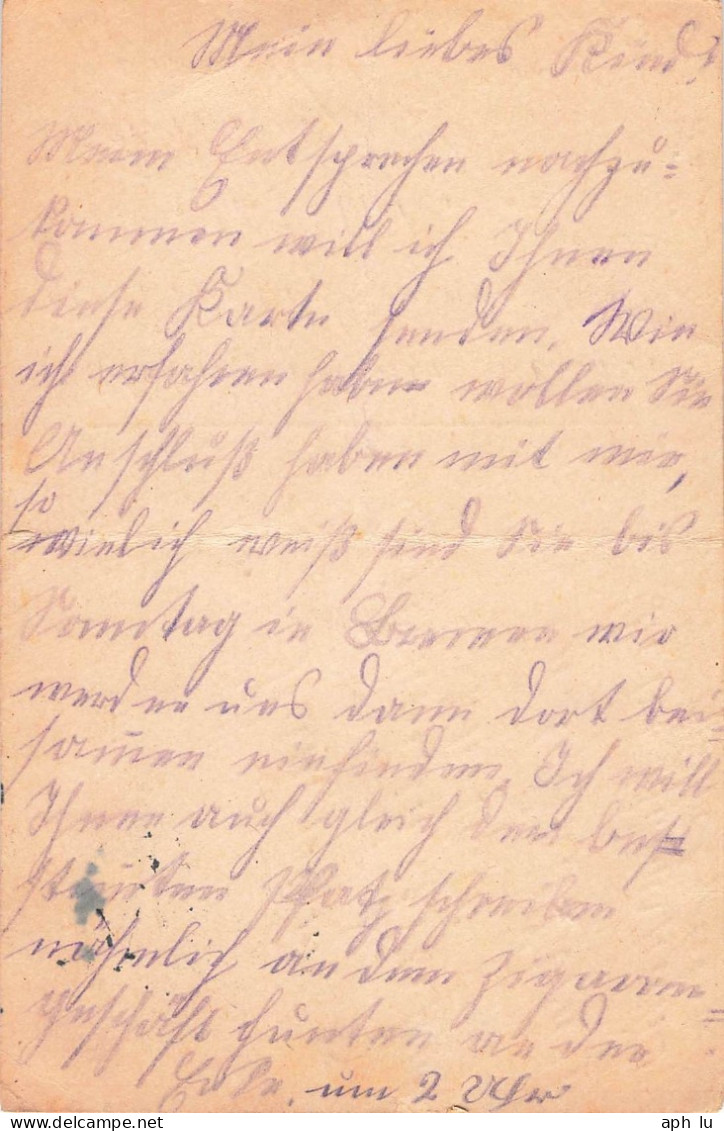 Mein liebes Kind!
Meim Entsprechen nachzu=
kommen will ich Ihnen
diese Karte senden. Wie
ich erfahren habe wollen Sie
Anschluß haben mit mir,
so
wielich weiß sind Sie bis
Sonntag in Bremen wir
werden uns dann dort bei=
samen einfinden. Ich will
Ihnen auch gleich den bes=
timten Platz schreiben
nähmlich an dem Zigarren=
geschäft hunten an der
Ecke. um 2 Uhr
aph lu